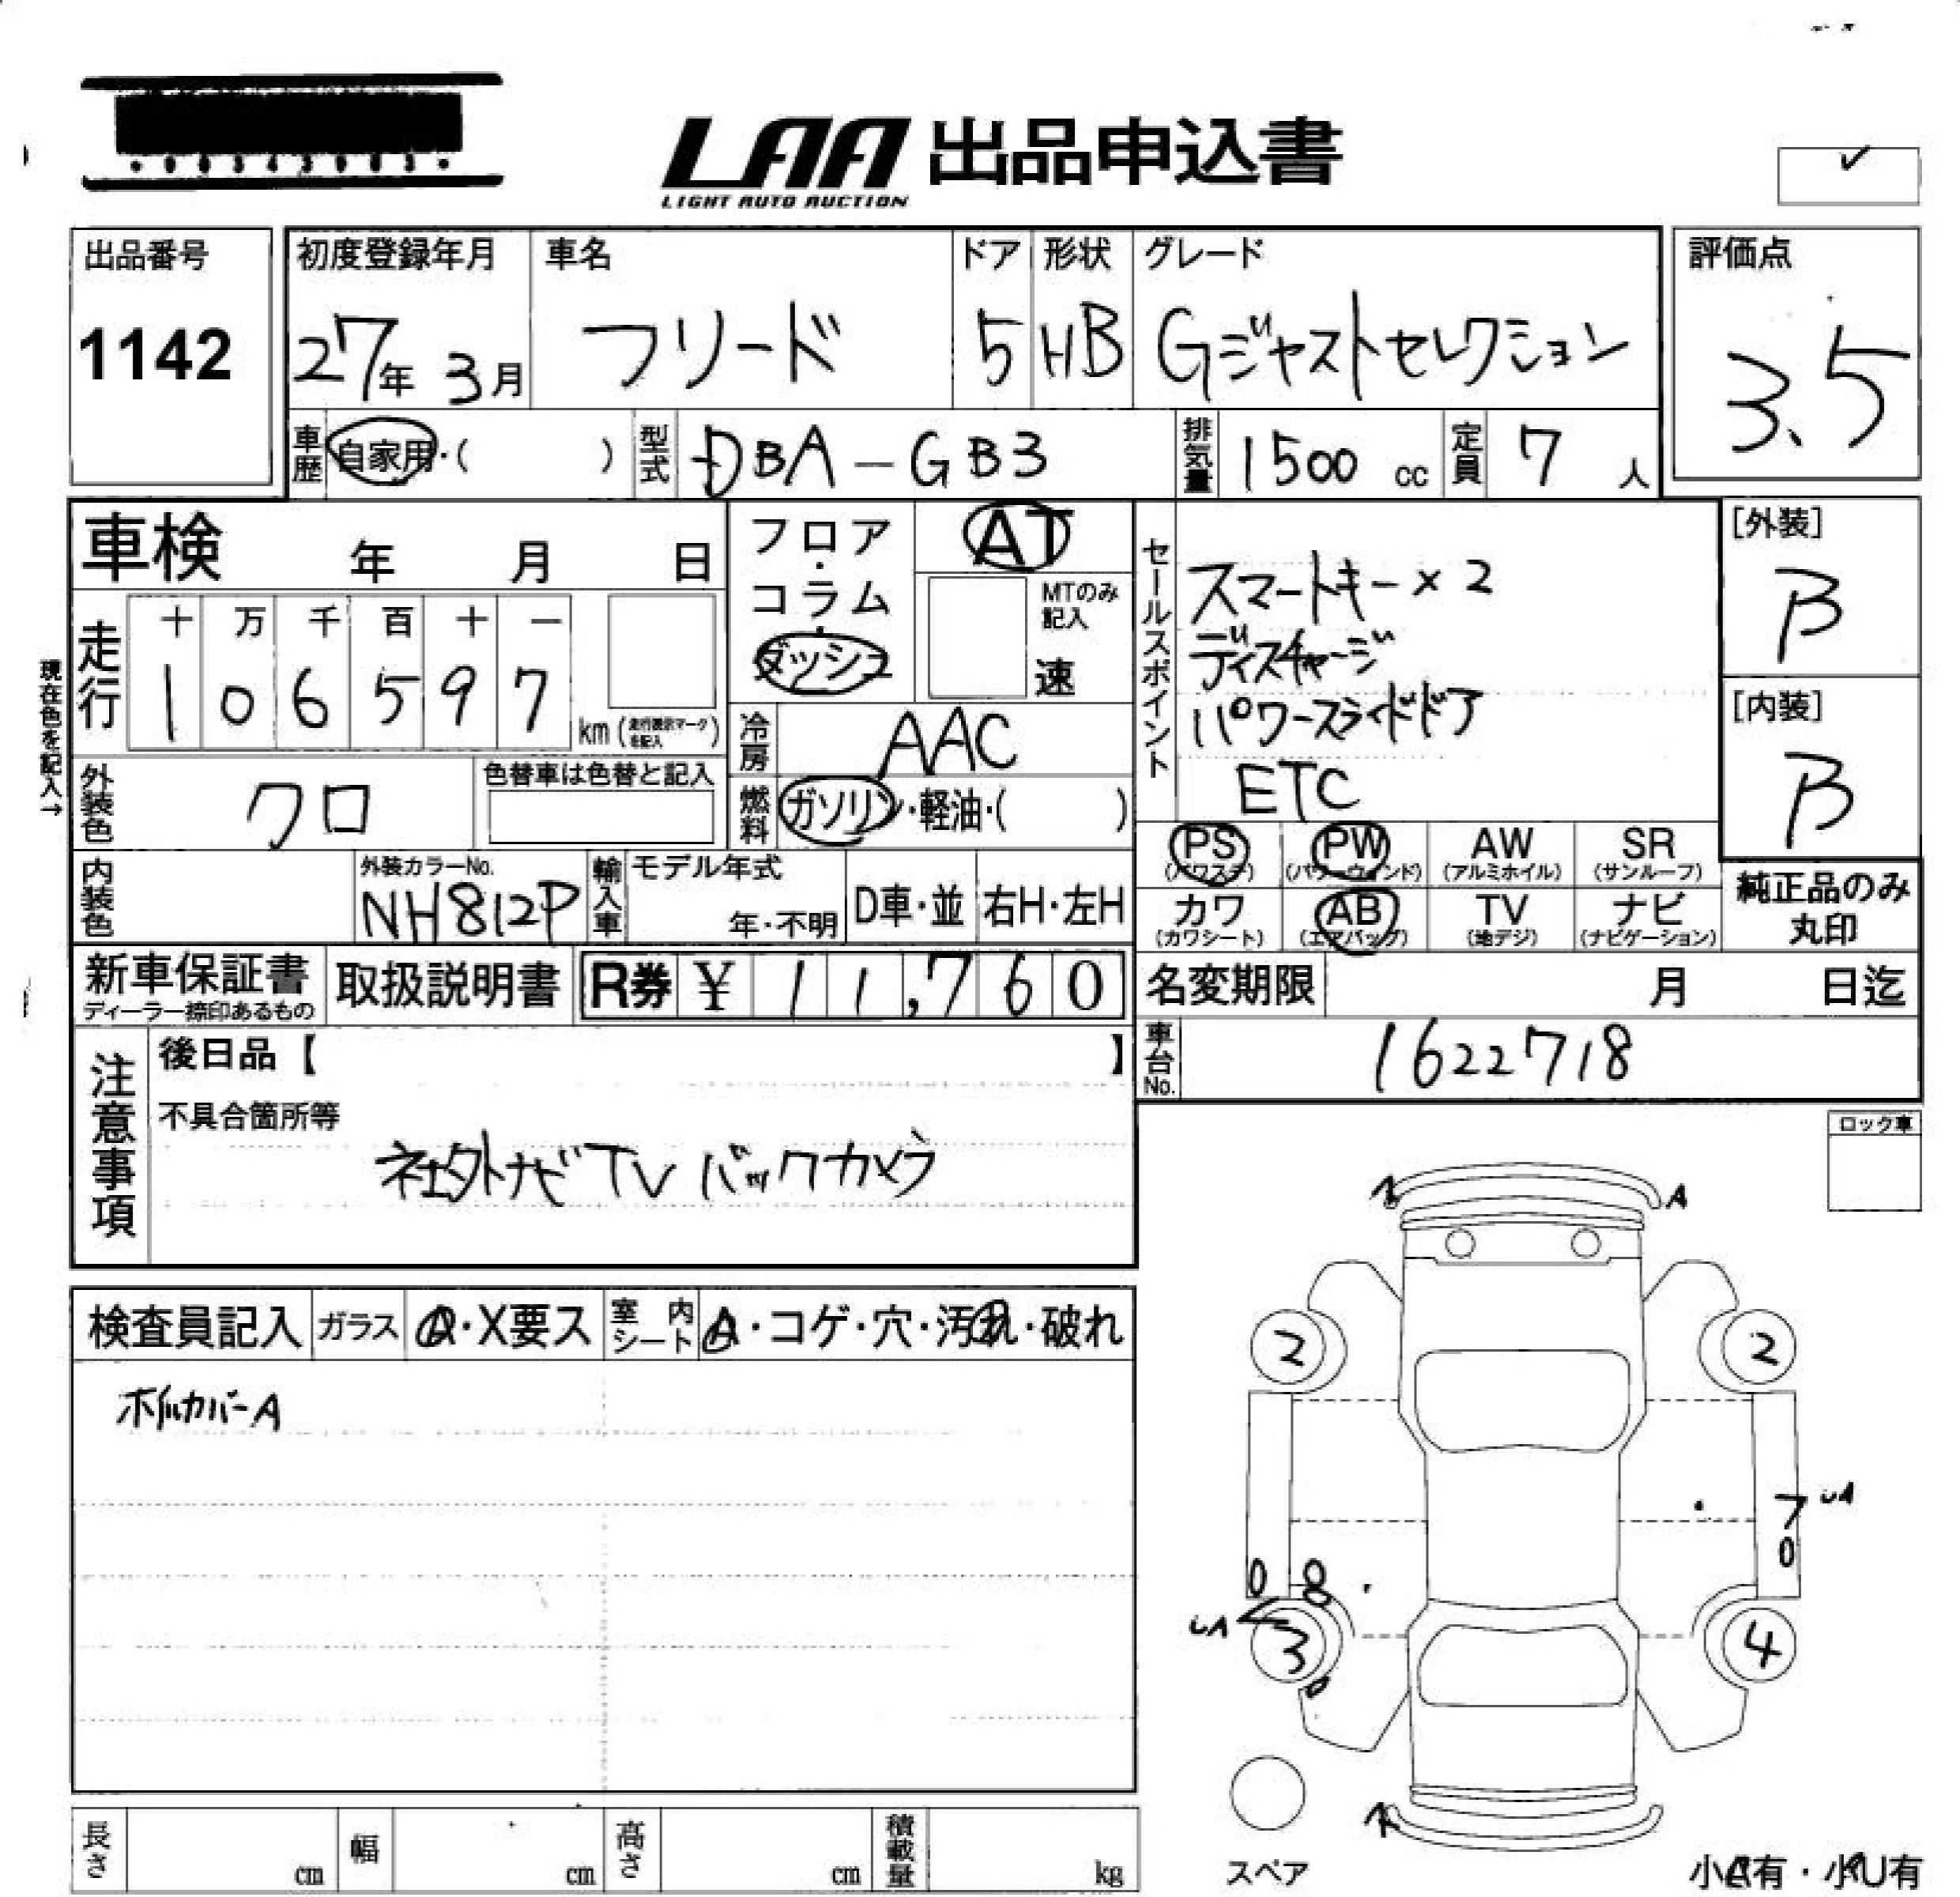 LAA 出品申込書
LIGHT AUTO AUCTION
出品番号
1142
初度登録年月 車名 ドア 形状 グレード
27年 3月 フリード 5 HB Gジャストセレクション
評価点
3.5
車歴 自家用・( ) 型式 DBA-GB3 排気量 1500 cc 定員 7 人
車検 年 月 日
フロア・コラム・ダッシュ
AT
MTのみ記入
速
現在色を記入→
走行
十 万 千 百 十 一
1 0 6 5 9 7 km (走行表示マークを記入)
冷房 AAC
外装色 クロ
色替車は色替と記入
燃料 ガソリン・軽油・( )
セールスポイント
スマートキー×2
ディスチャージ
パワースライドドア
ETC
[外装]
B
[内装]
B
PS AW SR PW
(パワステ) (パワーウィンド) (アルミホイル) (サンルーフ)
カワ AB TV ナビ
(カワシート) (エアバッグ) (地デジ) (ナビゲーション)
純正品のみ
丸印
内装色
外装カラーNo.
NH812P
輸入車 モデル年式
年・不明 D車・並 右H・左H
新車保証書
ディーラー捺印あるもの
取扱説明書
R券 ¥ 11,760
名変期限 月 日迄
車台No. 1622718
注意事項
後日品【 】
不具合箇所等
社外ナビTV バックカメラ
ロック車
検査員記入 ガラス ・X要ス 室内シート ・コゲ・穴・汚れ・破れ
ホイルカバーA
A
2 2
7
0
0 8
3 4
スペア
長さ cm 幅 cm 高さ cm 積載量 kg
小有・小U有